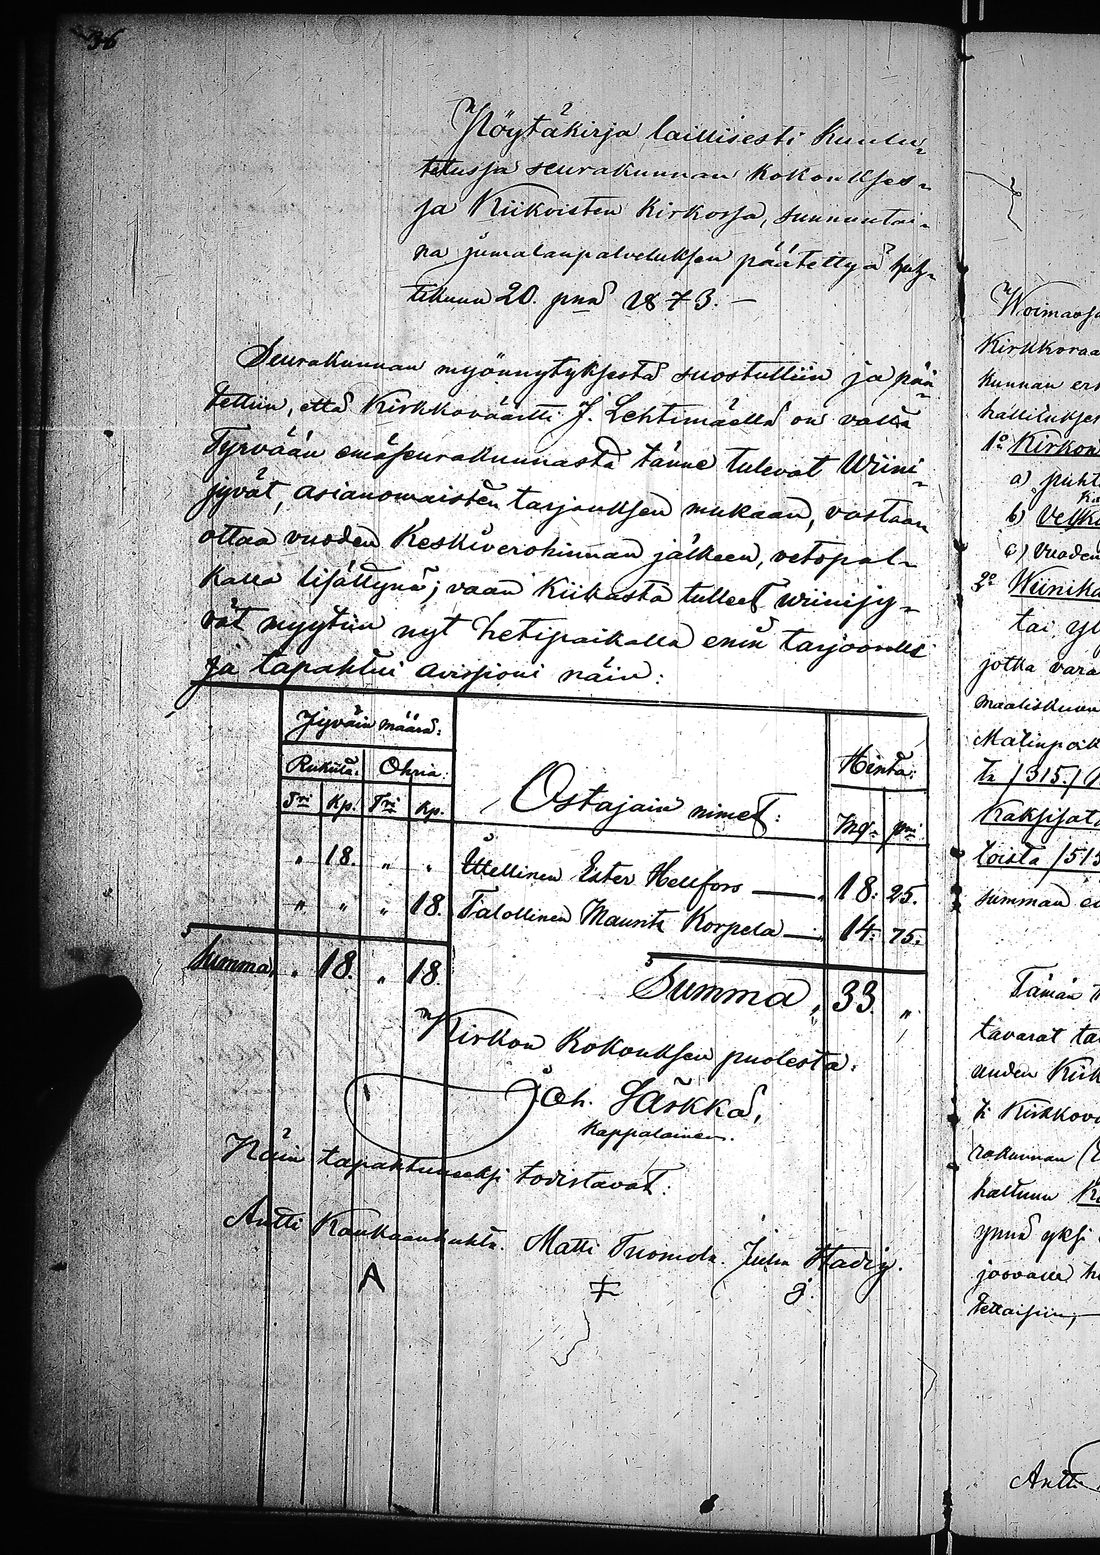 36
Pöytäkirja laillisesti kuulu-
tetussa seurakunnan kokoukses-
sa Kiikoisten kirkossa, sunnuntai-
na jumalanpalveluksen päätettyä huh-
tikuun 20. pnä 1873.–
Seurakunnan myönnytyksestä suostuttiin ja pää-
tettiin, että Kirkkovääri J. Lehtimäellä on valta
Tyrvään emäseurakunnasta tänne tulevat Wiini-
jyvät, asianomaisten tarjouksen mukaan, vastaan
ottaa vuoden Keskiverohinnan jälkeen, vetopal-
kalla lisättynä; vaan Kiikasta tulleet wiinijy-
vät myytiin nyt hetipaikalla enin tarjoovalle
ja tapahtui avisjioni näin:
Jyväin määrä:
Rukiita. Ohria: Ostajain nimet: Hinta:
Tri Kp. Tri Kp. Mg. pni
" 18. " " Itellinen Ester Hellfors — 18: 25.
" " " 18. Talollinen Maunts Korpela — 14: 75.
Summa " 18. " 18. Summa 33. "
Kirkon Kokouksen puolesta:
Joh. Särkkä,
Kappalainen.
Näin tapahtuneeksi todistavat:
Antti Kaukaanhuhta. Matti Tuomola. Juha Stadig.
A J.
Woimassa
Kirkkoraa
kunnan er
hallitukse
1:o Kirkon
a) puht
b) velk
c) vuoden
2:o Weinika
tai yl
jotka vara
maaliskuun
Matinpoik
ta /315./
Kaksisat
toista /515
summan
Tämän
tavarat ta
uuden Kirk
J: Kirkkov
rakunnan
haltuun
ynnä yksi
joovalle h
tettaisiin,–
Antti